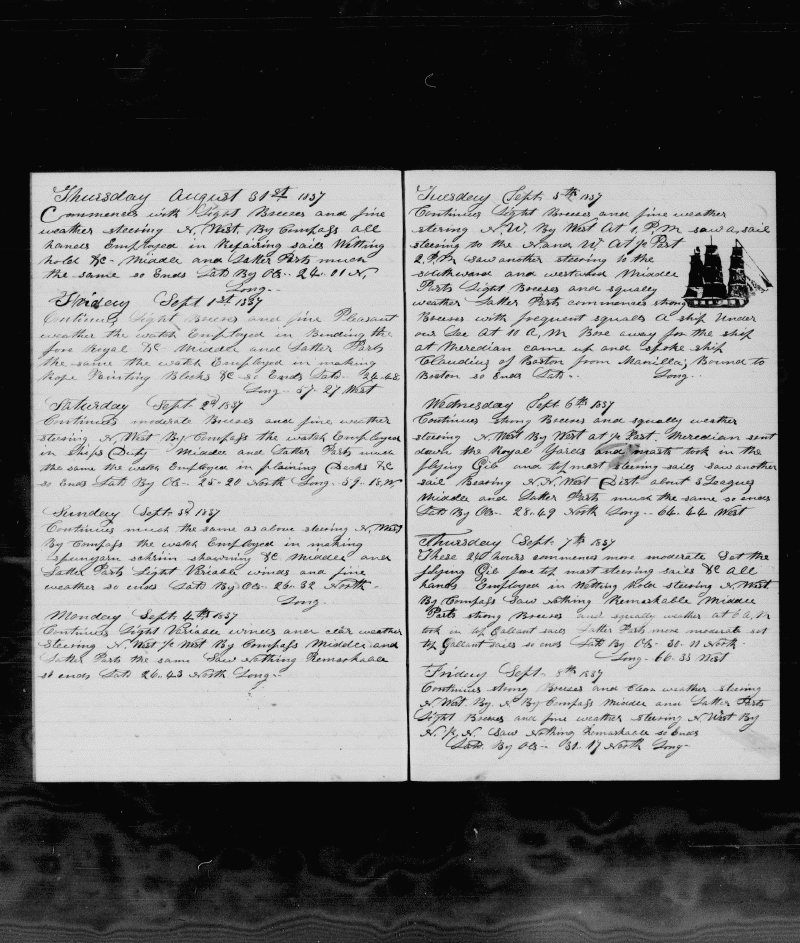 Thursday August 31st 1837
Commences with Light Breezes and fine
weather steering N. West. By Compass all
hands Employed in Repairing sails Wetting
hold &c- Middle and Latter Parts much
the same so Ends Latd By Ob.. 24-11 N.
Long-
Friday Sept 1st 1837
Continues Light Breezes and fine Pleasant
weather the watch Employed in Bending the
fore Royal &c Middle and Latter Parts
the same the watch Employed in making
Rope Painting Blocks &c so Ends Latd- 24-48
Long- 57-27 West
Saturday Sept 2d 1837
Continues moderate Breezes and fine weather
steering N, West By Compass the watch Employed
in Ships Duty Middle and Latter Parts much
the same the watch Employed in plaining Decks &c
so Ends Latd By Ob- 25-20 North Long- 59-18, W,
Sunday Sept- 3d 1837
Continues much the same as above steering N, West
By Compass the watch Employed in making
Spunyarn &c Middle and
Latter Parts Light Variable winds and fine
weather so ends Latd By Ob- 26-32 North-
Long-
Monday Sept 4th 1837
Continues Light Variable winds and clear weather
Steering N. West ½ West By Compass Middle and
Latter Parts the same Saw Nothing Remarkable
so ends Latd 26-43 North Long-
Tuesday Sept. 5th 1837
Continues Light Breezes and fine weather
stering N.W. By West At 1, P,M saw a, sail
steering to the N. and W At ½ Past
2. P.M saw another steering to the
southward and westward Middle
Parts Light Breezes and squaly
weather Latter Parts commences strong
Breezes with frequent squals A ship Under
our Lee At 11 A, M Bore away for the ship
at Meredian came up and spoke ship
Claudius of Boston from Manilla, Bound to
Boston so Ends Latd- - Long-
Wednesday Sept 6th 1837
Continues strong Breezes and squally weather
steering N. West By West at ½ Past. Meredian sent
down the Royal Yards and masts took in the
flying Gib and top most steering sails saw another
sail Bearing N.N. West Dist about 3 Leagues
Middle and Latter Parts much the same so ends
Latd By Ob- 28-49 North Long- 64-44 West
Thursday Sept. 7th 1837
These 24 hours commences more moderate Sot the
flying Gib fore top mast steering sailes &c All
hands Employed in Wetting hold steering N. West
By Compass Saw Nothing Remarkable Middle
Parts strong Breezes and squally weather at 6 A, M
took in top Gallant sails Latter Parts more moderate sot
top Gallant sails so ends Latd By Ob- 31-11 North-
Long- 66-33 West
Friday Sept- 8th 1837
Continues strong Breezes and Clear weather steering
N. West. By N. By Compass Middle and Latter Parts
Light Breezes and fine weather steering N. West By
N. ½ N. Saw Nothing Remarkable so Ends
Latd By Ob- 31-17 North Long-